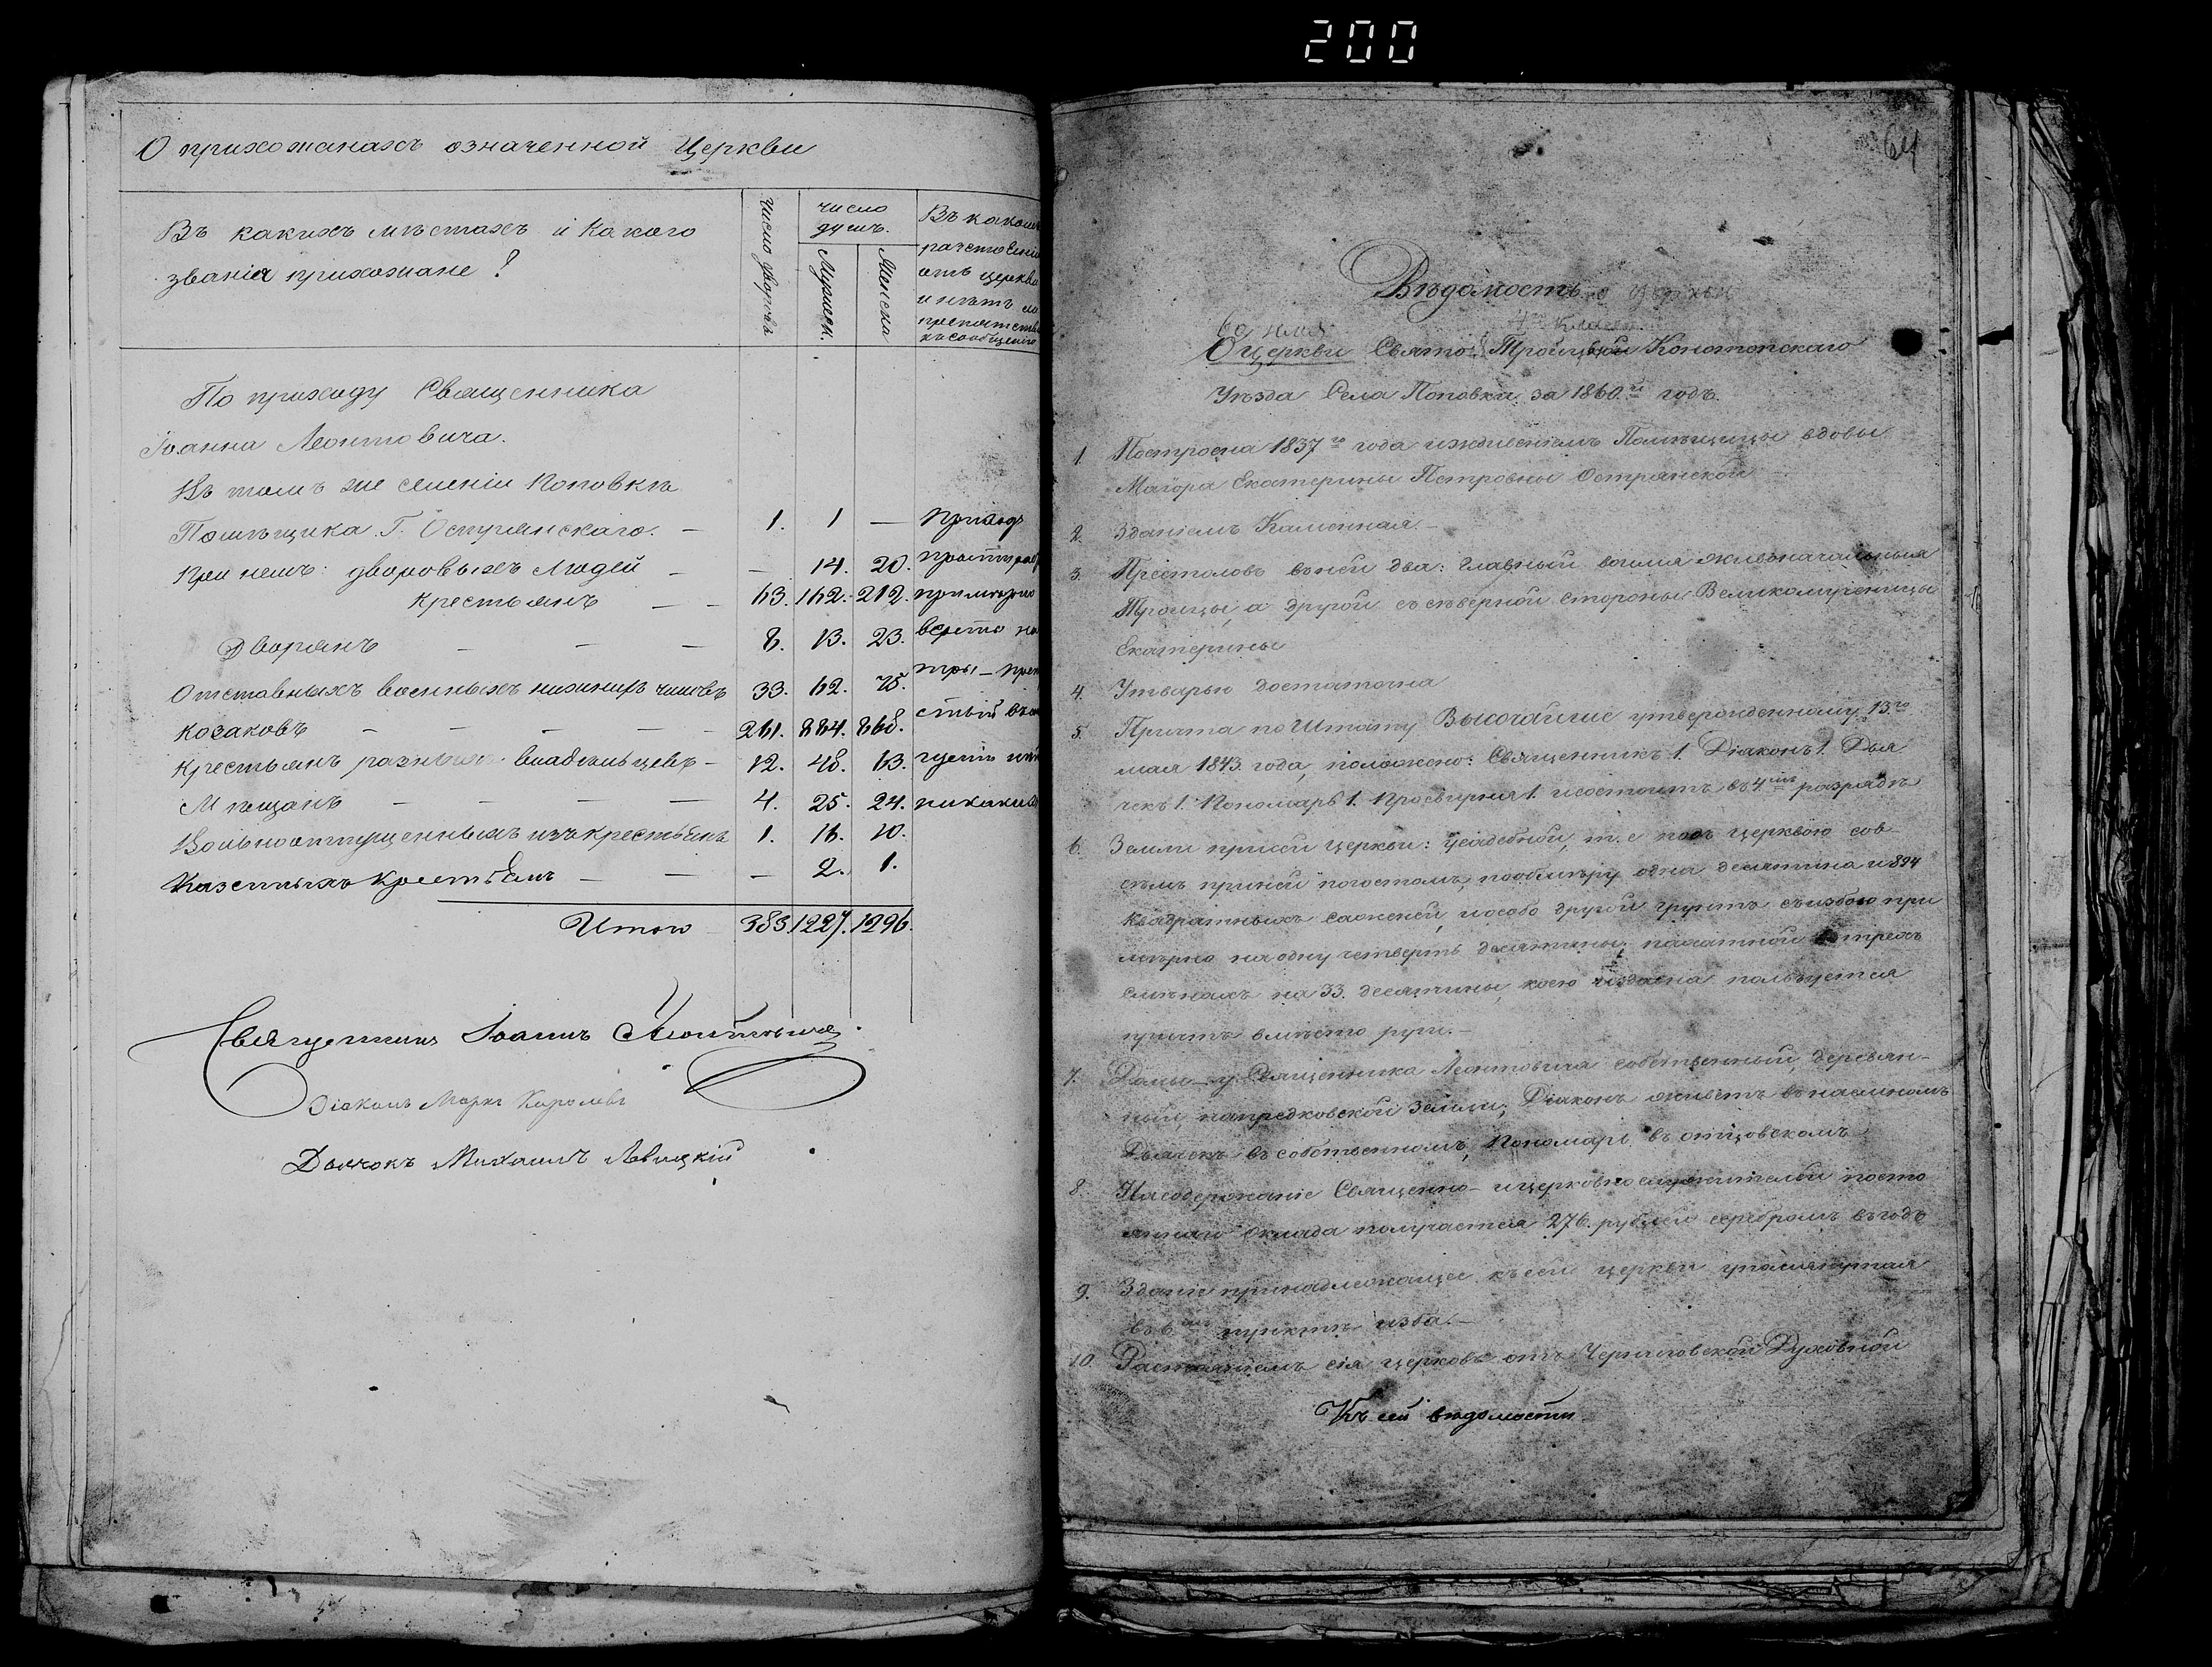 200
О прихожанахъ означенной Церкви
Въ какихъ мѣстахъ и Какого
званія прихожане?
Число дворовъ
число
душъ.
Мужеск.
Женска
Въ каком
разстоянія
отъ церкви
и нѣтъ ли
препятств
къ сообщенію
По приходу Священника
Іоанна Леонтовича.
Въ томъ же селеніи Поповкѣ
Помѣщика Г. Острянскаго. — 1. 1 — Приход
При немъ: дворовыхъ Людей — — 14. 20.
крестьянъ — — 63. 162. 212. примѣрно
Дворянъ — — — 8. 13. 23. верстъ на
Отставныхъ военныхъ нижнихъ чиновъ 33. 62. 75. три —
Козаковъ — — — — — 261. 884. 868.
Крестьянъ разныхъ владѣльцевъ — 12. 48. 63.
Мѣщанъ — — — — 4. 25. 24. никаких
Вольноотпущенныхъ изъ крестьянъ 1. 16. 10.
Казенныхъ крестьянъ — — — 2. 1.
Итого 383. 1227. 1296.
Священникъ Іоаннъ Леонтовичъ.
Діаконъ Маркъ Королевъ
Дьячокъ Михаилъ Левицкій
64
Вѣдомость о церкви
во имя
О церкви Свято Троицкой Конотопскаго
Уѣзда Села Поповки за 1860й годъ.
1. Построена 1837го года иждивеніемъ Помѣщицы вдовы
Маіора Екатерины Петровны Острянской
2. Зданіемъ Каменная. —
3. Престоловъ въ ней два: главный во имя живоначальныя
Троицы, а другой съ сѣверной стороны Великомученицы
Екатерины
4. Утварью достаточна
5. Причта по Штату Высочайше утвержденному 13го
мая 1843. года, положено: Священникъ 1. Діаконъ 1. Дья
чекъ 1. Пономарь 1. Просвирня 1. и состоитъ въ 4мъ разрядѣ
6. Земли при сей церкви: усадебной, т. е подъ церквою сов-
сѣмъ при ней погостомъ, пообмѣру одна десятина и 894
квадратныхъ саженей, и особо другой грунтъ съ избою при
мѣрно на одну четверть десятины; пахатной въ трехъ
смѣнахъ на 33. десятины, коею издавна пользуется
причтъ вмѣсто руги. —
7. Домы — у Священника Леонтовича собственный, деревян-
ный, на предковской земли; Діаконъ живетъ въ наемномъ
Дьячекъ въ собственномъ, Пономарь въ отцовскомъ
8. На содержаніе Священно- и церковнослужителей посто
яннаго оклада получается 276. рублей серебромъ въ годъ
9. Зданіе принадлежащее къ сей церкви упомянутая
въ 6мъ пунктѣ изба. —
10. Разстояніемъ сія церковь отъ Черниговской Духовной
Къ сей вѣдомости